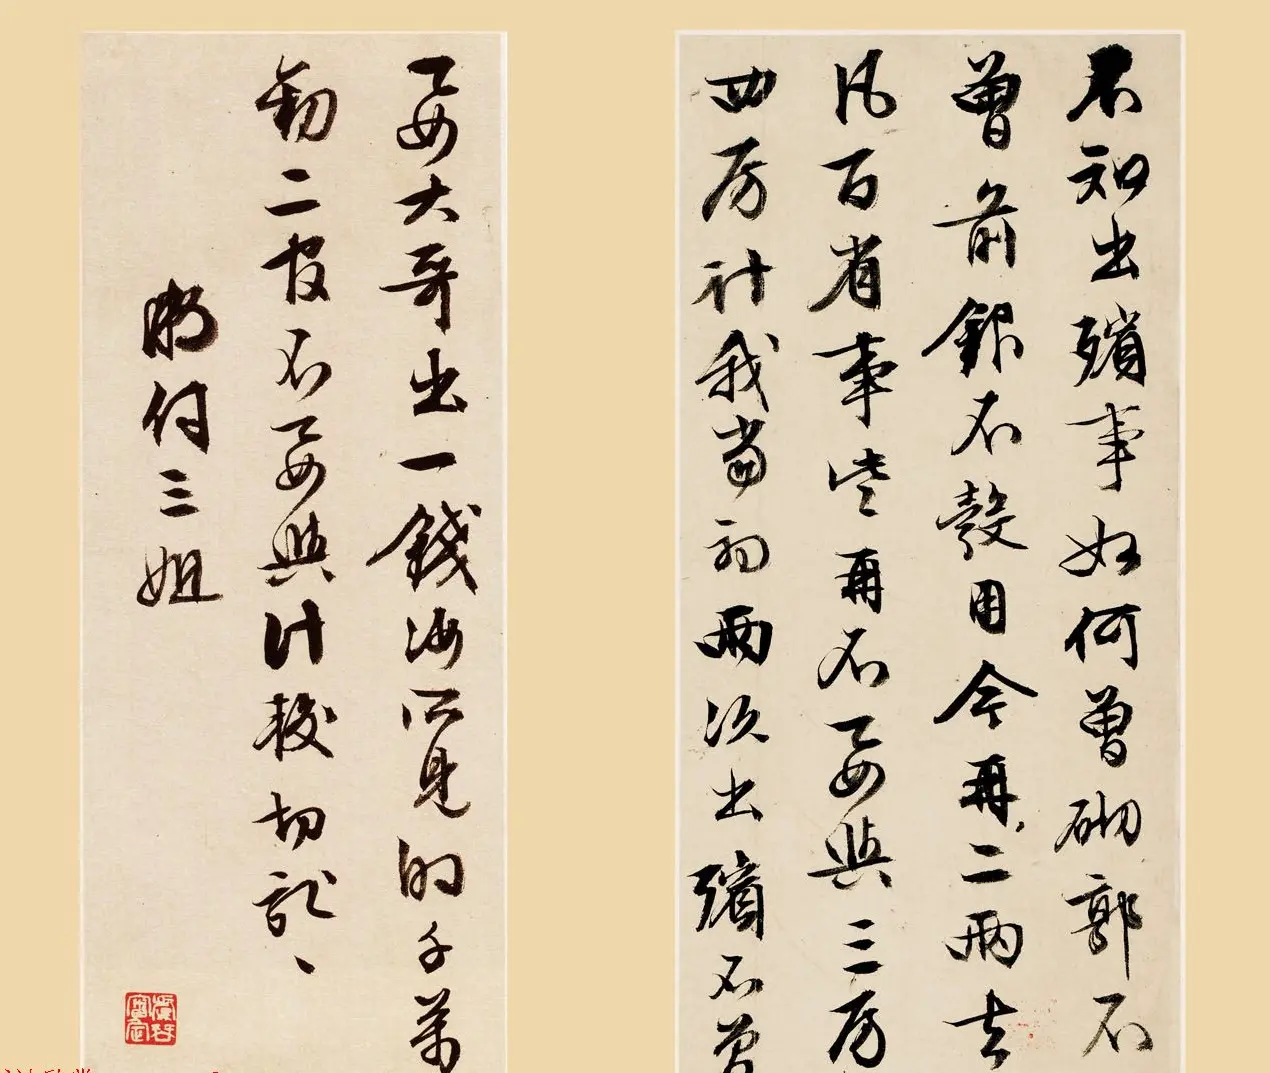 不知出殯事如何曾砌郭不
曾前銀不彀用今再二兩去
凡百省事些再不要與三房
四房計我當初兩次出殯不曾
要大哥出一錢汝所見的千萬
勸二叔不要與計較切記、
付三姐